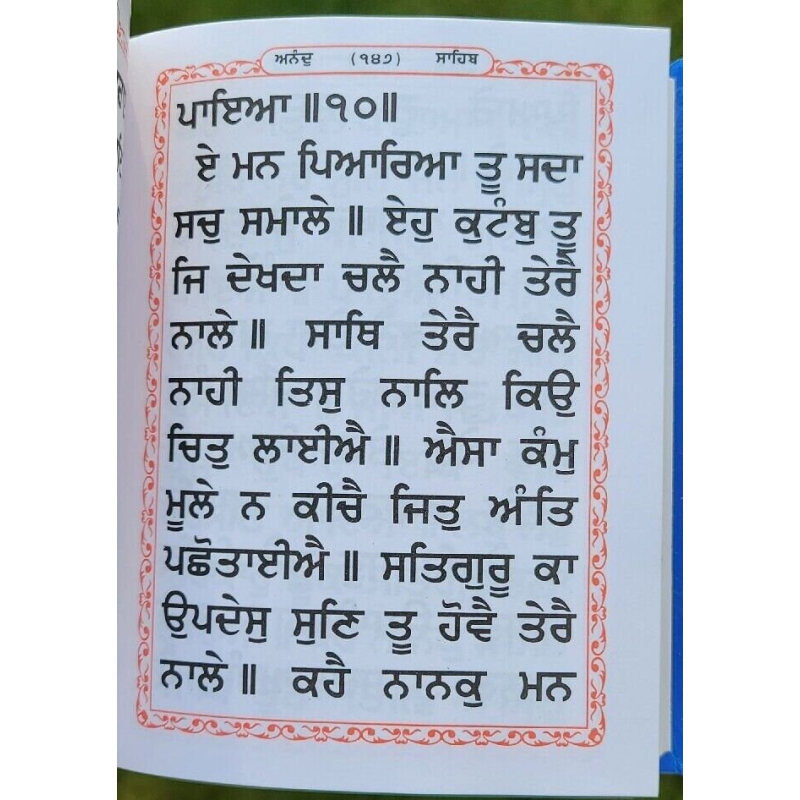 ਅਨੰਦੁ (੧੪੭) ਸਾਹਿਬ
ਪਾਇਆ ॥੧੦॥
ਏ ਮਨ ਪਿਆਰਿਆ ਤੂ ਸਦਾ
ਸਚੁ ਸਮਾਲੇ ॥ ਏਹੁ ਕੁਟੰਬੁ ਤੂ
ਜਿ ਦੇਖਦਾ ਚਲੈ ਨਾਹੀ ਤੇਰੈ
ਨਾਲੇ ॥ ਸਾਥਿ ਤੇਰੈ ਚਲੈ
ਨਾਹੀ ਤਿਸੁ ਨਾਲਿ ਕਿਉ
ਚਿਤੁ ਲਾਈਐ ॥ ਐਸਾ ਕੰਮੁ
ਮੂਲੇ ਨ ਕੀਚੈ ਜਿਤੁ ਅੰਤਿ
ਪਛੋਤਾਈਐ ॥ ਸਤਿਗੁਰੂ ਕਾ
ਉਪਦੇਸੁ ਸੁਣਿ ਤੂ ਹੋਵੈ ਤੇਰੈ
ਨਾਲੇ ॥ ਕਹੈ ਨਾਨਕੁ ਮਨ